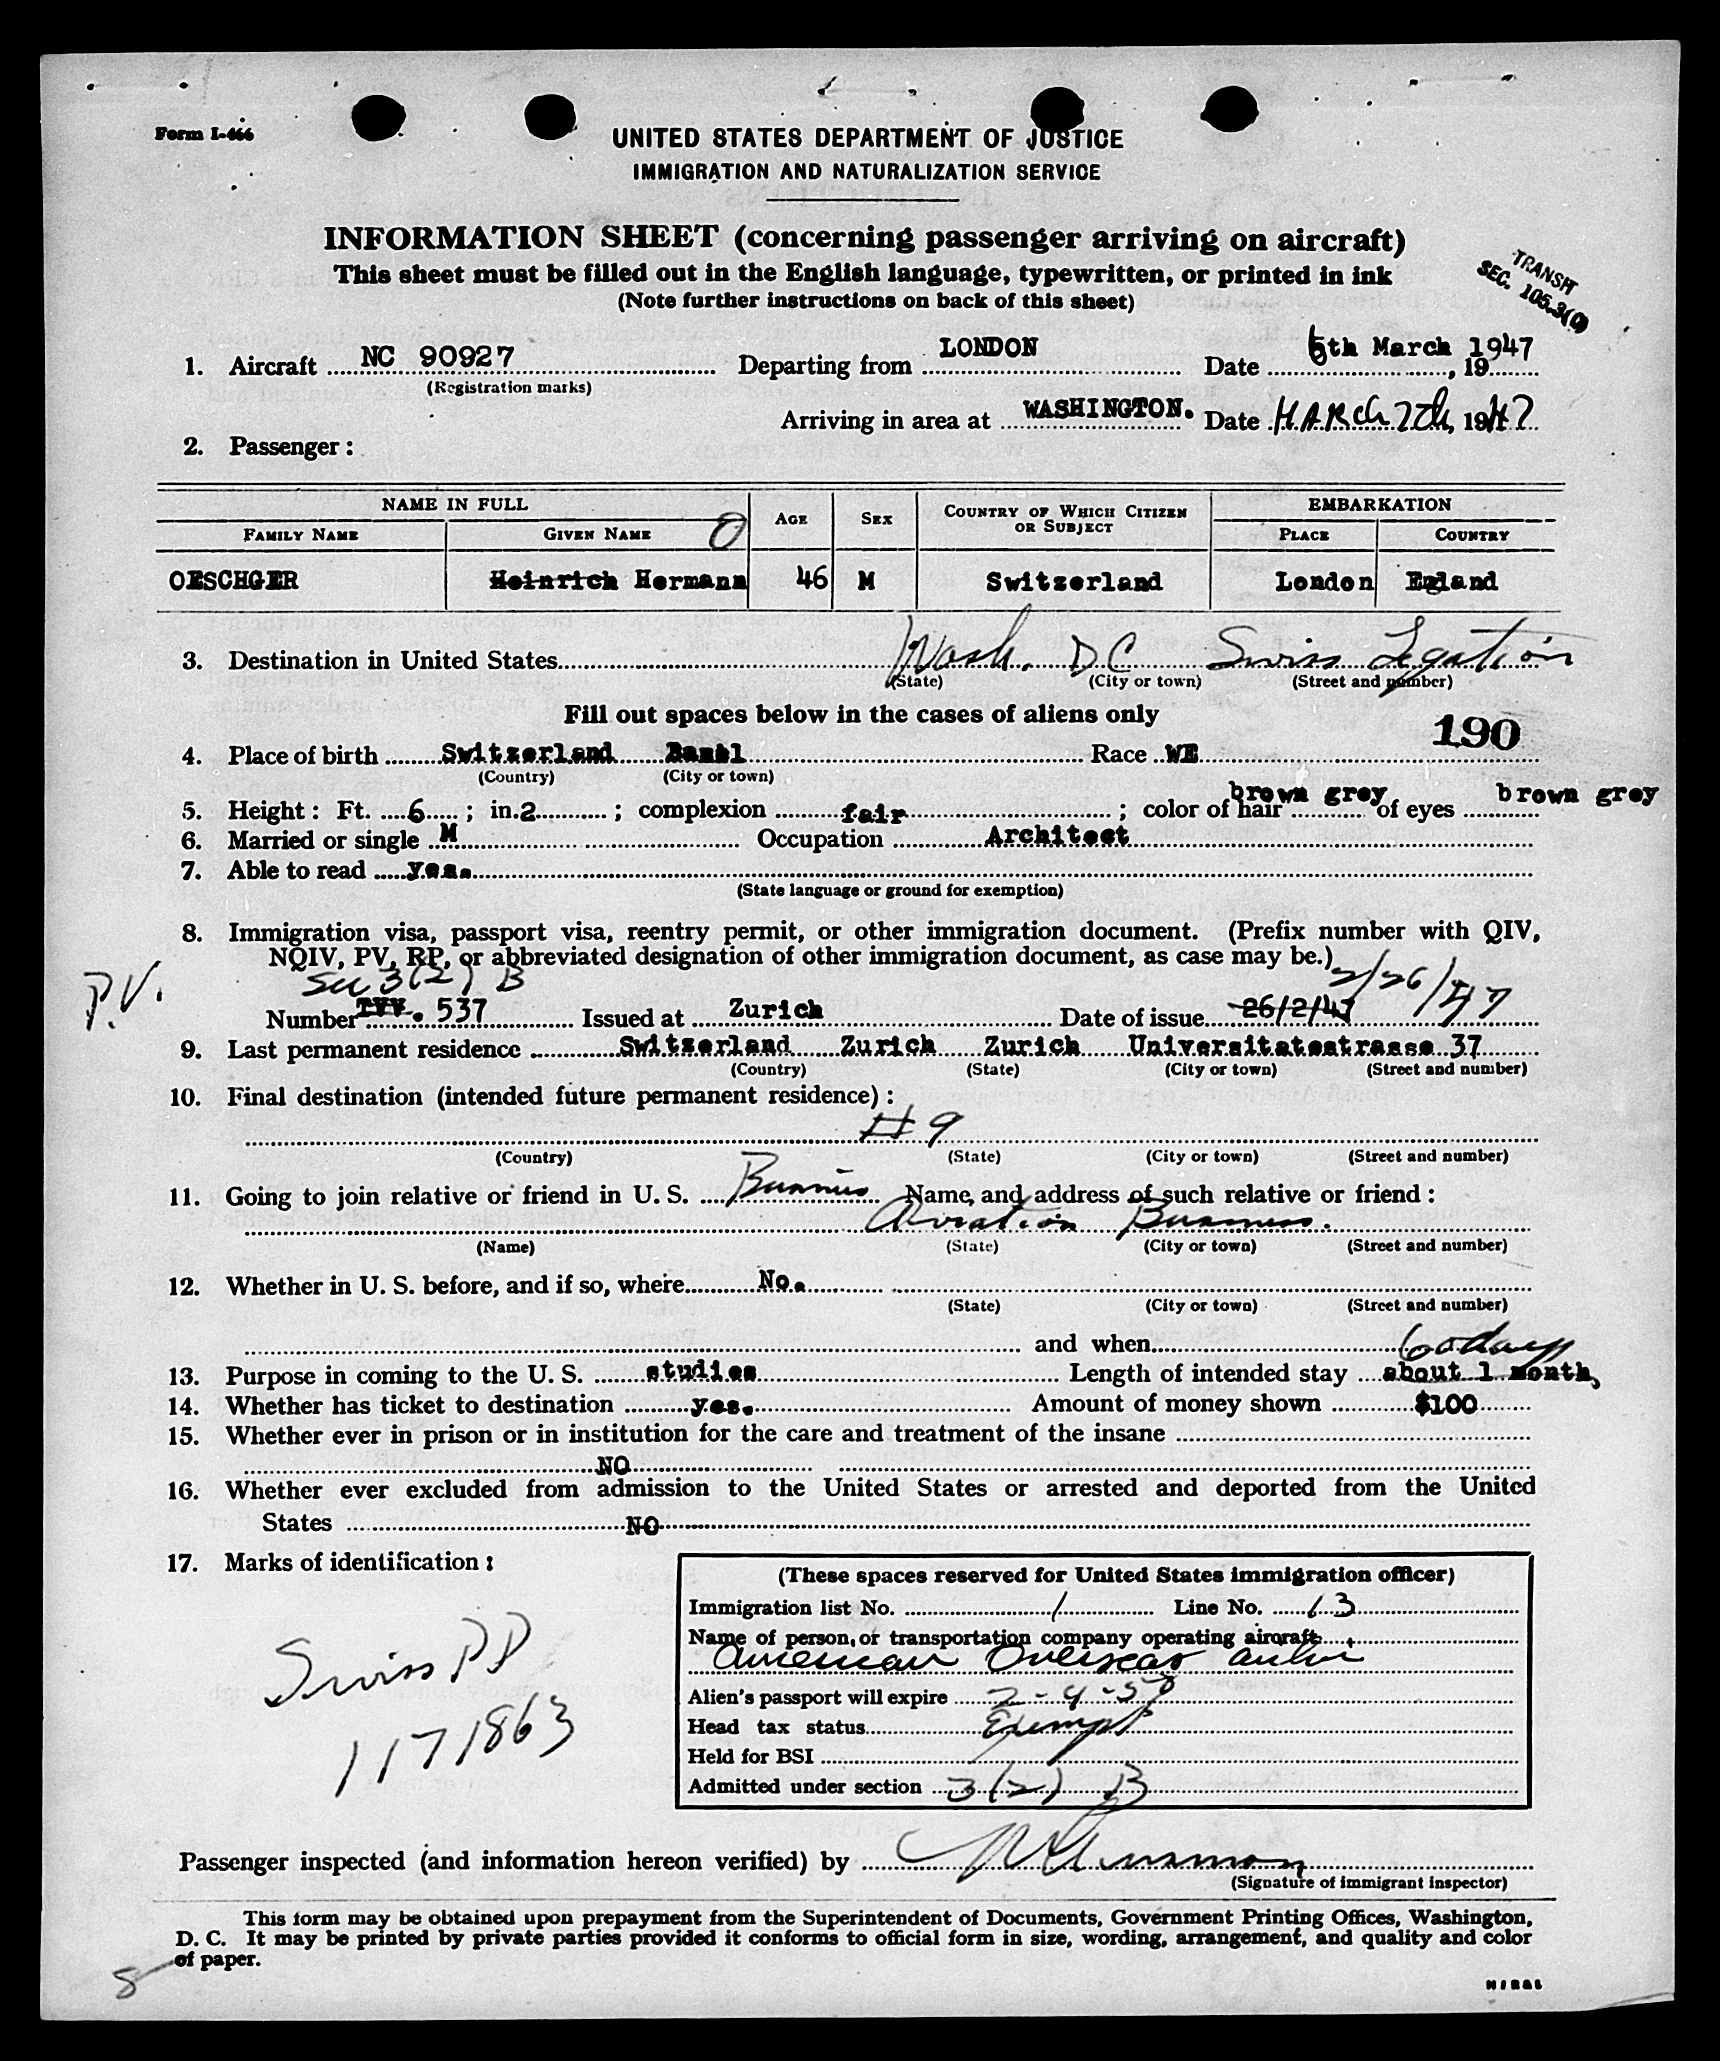 Form I-466
UNITED STATES DEPARTMENT OF JUSTICE
IMMIGRATION AND NATURALIZATION SERVICE
INFORMATION SHEET (concerning passenger arriving on aircraft)
This sheet must be filled out in the English language, typewritten, or printed in ink
(Note further instructions on back of this sheet)
TRANSIT
SEC. 105.3(c)
1. Aircraft NC 90927 Departing from LONDON Date 6th March 1947, 19
(Registration marks)
Arriving in area at WASHINGTON. Date MARCH 7th, 1947
2. Passenger:
NAME IN FULL EMBARKATION
FAMILY NAME GIVEN NAME O AGE SEX COUNTRY OF WHICH CITIZEN OR SUBJECT PLACE COUNTRY
OESCHGER Heinrich Hermann 46 M Switzerland London England
3. Destination in United States Wash. DC Swiss Legation
(State) (City or town) (Street and number)
Fill out spaces below in the cases of aliens only
190
4. Place of birth Switzerland Basel Race WE
(Country) (City or town)
5. Height: Ft. 6; in. 2; complexion fair; color of hair brown grey of eyes brown grey
6. Married or single M Occupation Architect
7. Able to read yes.
(State language or ground for exemption)
8. Immigration visa, passport visa, reentry permit, or other immigration document. (Prefix number with QIV,
NQIV, PV, RP, or abbreviated designation of other immigration document, as case may be.)
P.V. Sec 3(2) B 2/26/47
Number TVV. 537 Issued at Zurich Date of issue 26/2/47
9. Last permanent residence Switzerland Zurich Zurich Universitatsstrasse 37
(Country) (State) (City or town) (Street and number)
10. Final destination (intended future permanent residence):
#9
(Country) (State) (City or town) (Street and number)
11. Going to join relative or friend in U. S. Business Name, and address of such relative or friend:
Aviation Business.
(Name) (State) (City or town) (Street and number)
12. Whether in U. S. before, and if so, where No.
(State) (City or town) (Street and number)
and when
60 days
13. Purpose in coming to the U. S. studies Length of intended stay about 1 month,
14. Whether has ticket to destination yes. Amount of money shown $100
15. Whether ever in prison or in institution for the care and treatment of the insane
NO
16. Whether ever excluded from admission to the United States or arrested and deported from the United
States NO
17. Marks of identification:
Swiss PP
1171863
(These spaces reserved for United States immigration officer)
Immigration list No. 1 Line No. 13
Name of person, or transportation company operating aircraft
American Overseas Airline
Alien's passport will expire 2-4-50
Head tax status Exempt
Held for BSI
Admitted under section 3(2) B
Passenger inspected (and information hereon verified) by
(Signature of immigrant inspector)
This form may be obtained upon prepayment from the Superintendent of Documents, Government Printing Offices, Washington,
D. C. It may be printed by private parties provided it conforms to official form in size, wording, arrangement, and quality and color
of paper.
8